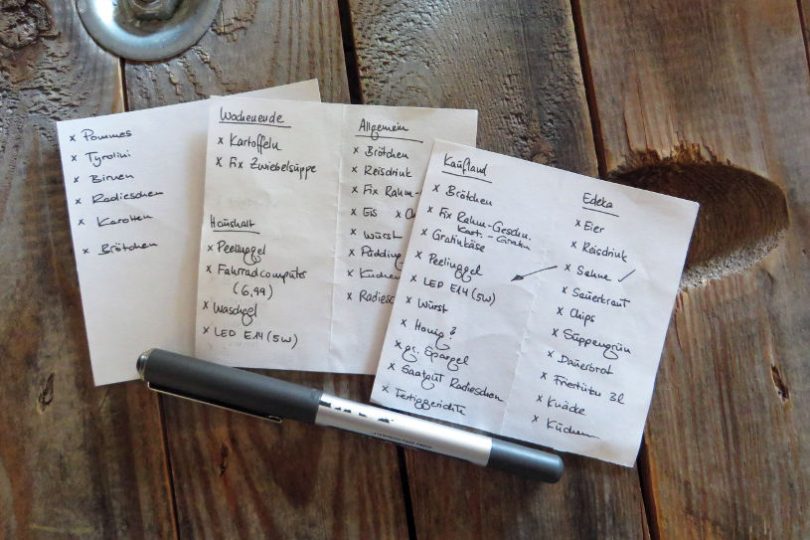 x Pommes
x Tyrolini
x Birnen
x Radieschen
x Karotten
x Brötchen
Wochenende
x Kartoffeln
x Fix Zwiebelsuppe
Haushalt
x Peelinggel
x Fahrradcomputer
(6,99)
x Waschgel
x LED E14 (5W)
Allgemein
x Brötchen
x Reisdrink
x Fix Rahm-
x Eis x Ch
x Würst
x Pudding
x Kuchen
x Radiesc
Kaufland
x Brötchen
x Fix Rahm-Geschn.
Kart.-Gratin
x Gratinkäse
x Peelinggel
x LED E14 (5W)
x Würst
x Honig?
x gr. Spargel
x Saatgut Radieschen
x Fertiggerichte
Edeka
x Eier
x Reisdrink
x Sahne ✓
x Sauerkraut
x Chips
x Suppengrün
x Dauerbrot
x 3l
x Knäcke
x Kuchen